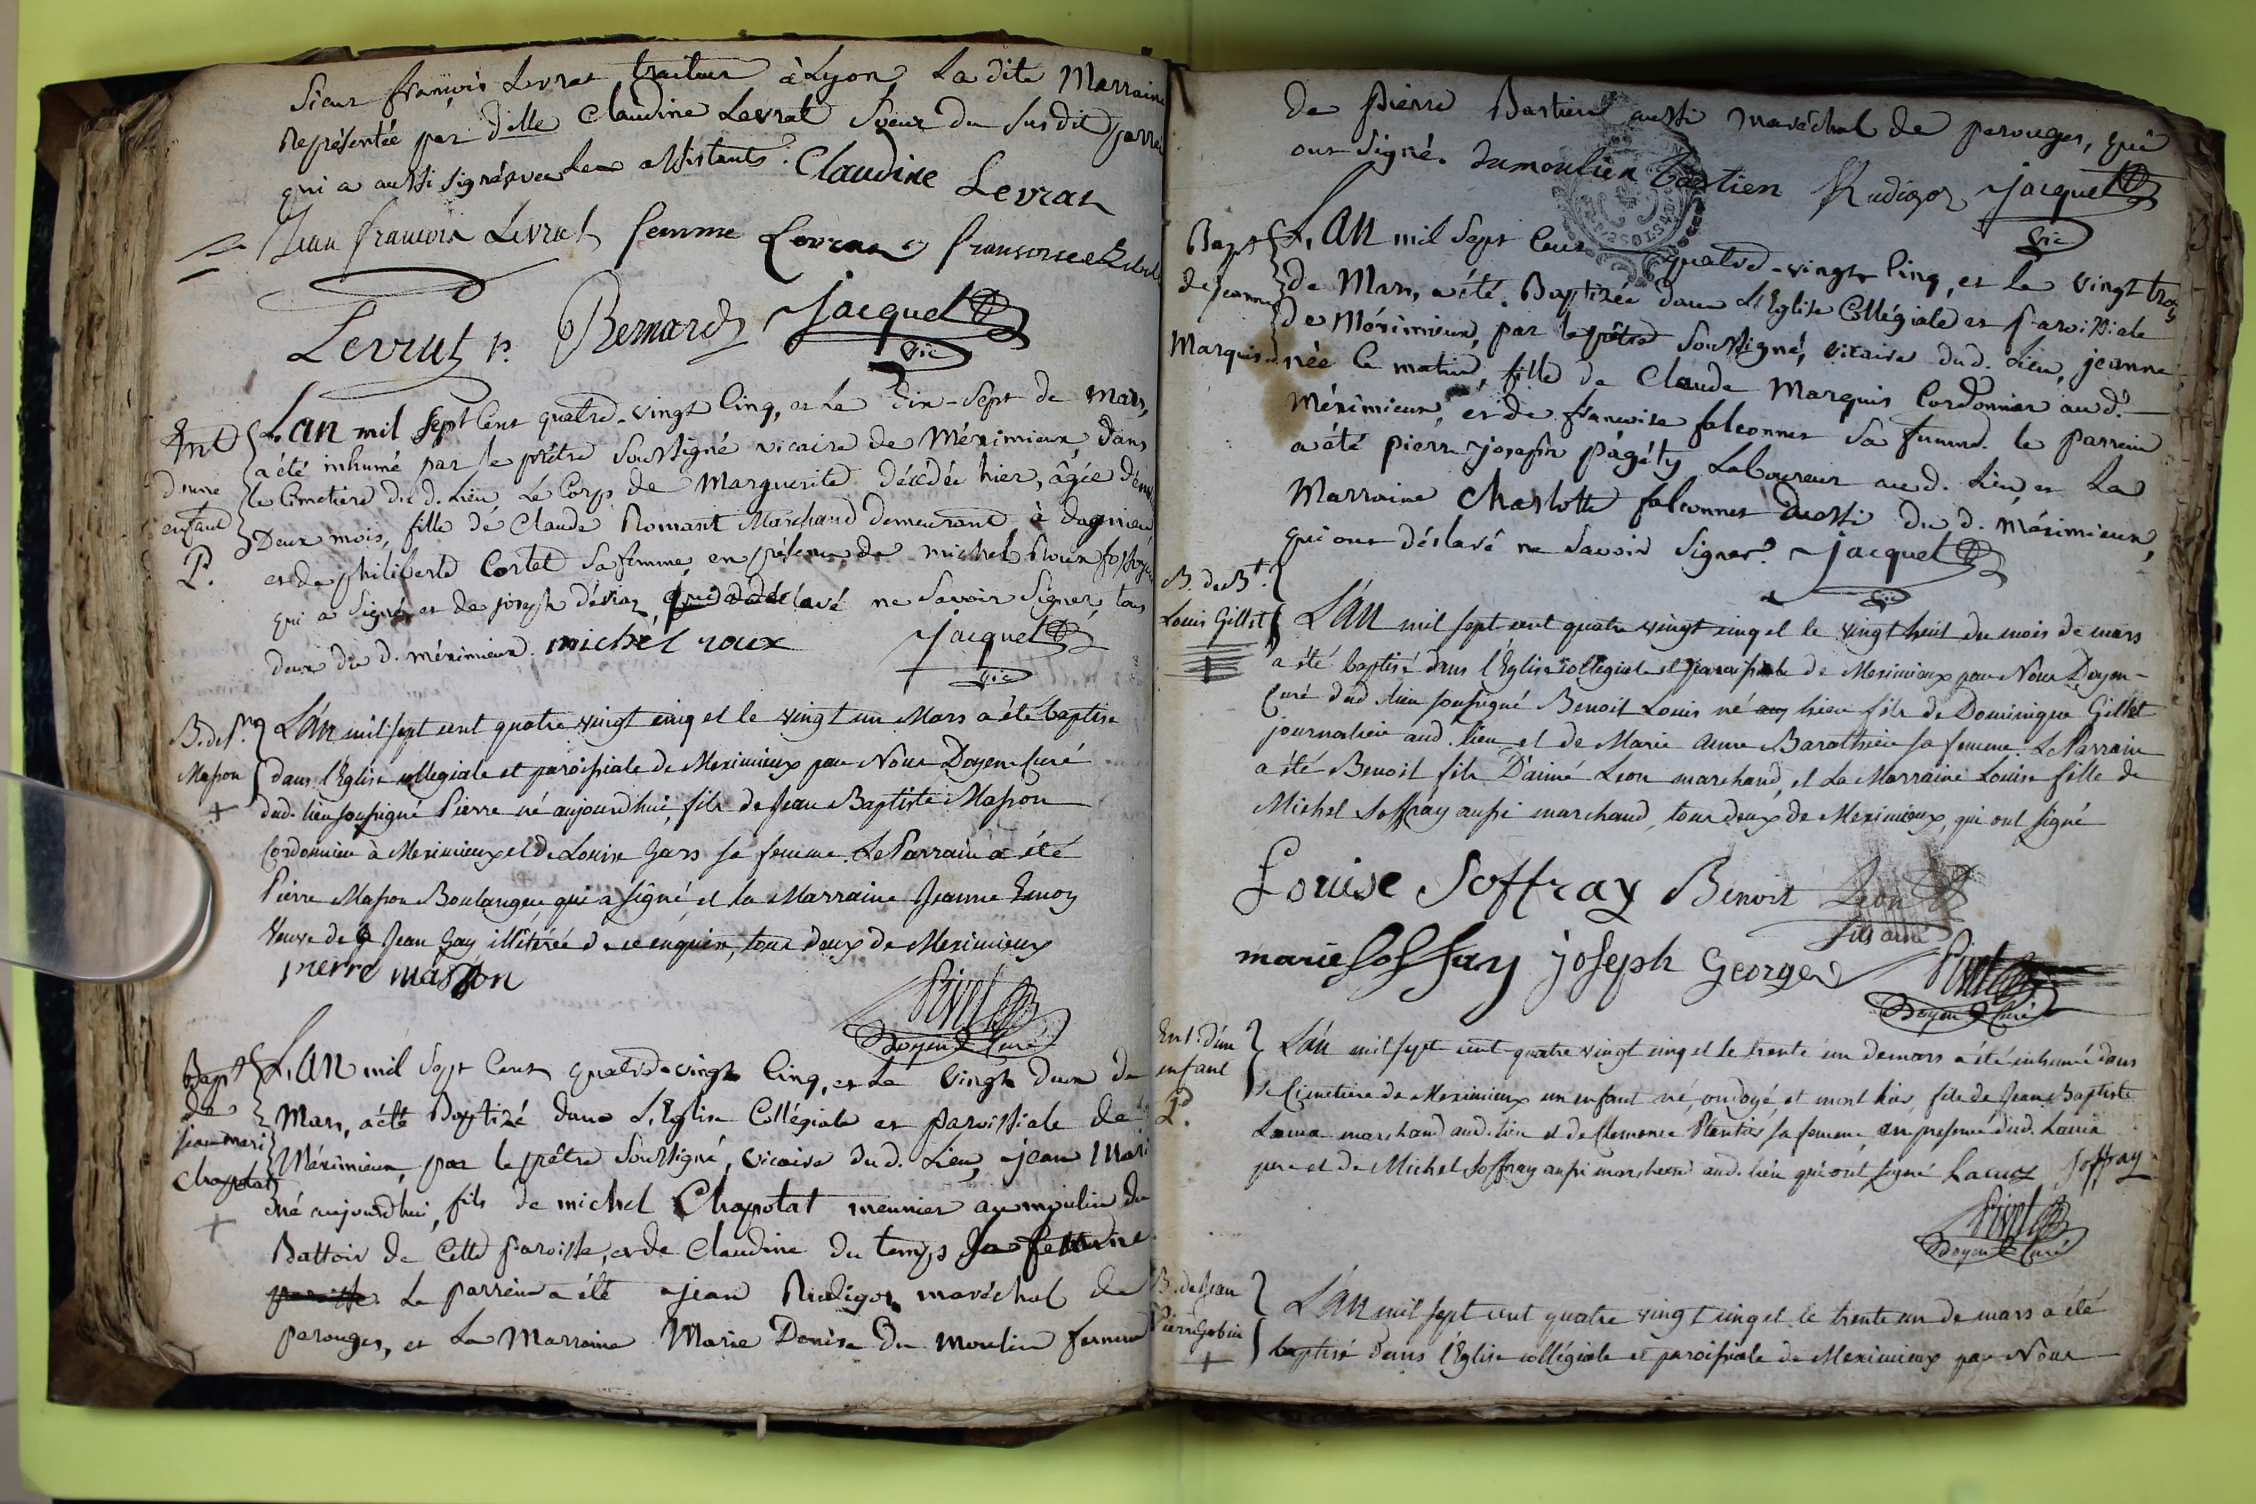 Sieur françois Levrat traiteur à Lyon, La dite Marraine
Représentée par dlle Claudine Levrat Soeur du Susdit parrein
qui a aussi signé avec les assistants. Claudine Levrat
Jean francois Levrat femme Levrat françoise
Levrat p. Bernard Jacquet
vic
Ent
d'une
enfant
P.
L'an mil sept Cent quatre-vingt Cinq, et Le Dix-Sept de Mars,
a été inhumé par le prêtre Soussigné vicaire de Méximieux, dans
le Cimetière du d. Lieu Le Corps de Marguerite décédée hier, âgée d'env.
Deux mois, fille de Claude Romant Marchand demeurant à dagnieu
et de philiberte Cortet Sa femme, en présence de michel Roux fossoyeur
qui a Signé et de joseph déviaz qui a déclaré ne Savoir Signer, tous
deux du d. méximieux. michel roux Jacquet
vic
B. de P.re
Masson
+
L'an mil sept cent quatre vingt cinq et le vingt un Mars a été baptisé
dans l'Eglise collegiale et paroissiale de Meximieux par Nous Doyen Curé
dud. lieu soussigné Pierre né aujourdhui, fils de Jean Baptiste Masson
Cordonnier à Meximieux et de Louise Gars sa femme. Le Parrain a été
Pierre Masson Boulanger, qui a signé, et la Marraine Jeanne
Veuve de Jean Gay illitérée de ce enquise, tous deux de Meximieux
pierre masson
Pivet
Doyen Curé
Bapt
de
jean mari
Chapotat
+
L'an mil Sept Cent quatre-vingt Cinq, et Le vingt deux de
Mars, a été Baptizé dans L'Eglise Collégiale et paroissiale de
Méximieux, par le prêtre Soussigné, vicaire du d. Lieu, jean Mari
né aujourd'hui, fils de michel Chapotat meunier au moulin du
Battoir de Cette paroisse, et de Claudine du temps Sa femme
paroisse. Le parrein a été jean Rudigoz maréchal de
perouges, et La Marraine Marie Denise Du moulin femme
de pierre Bartien aussi maréchal de perouges, qui
ont Signé. dumoulien bartien Rudigoz Jacquet
vic
Bapt
de jeanne
Marquis
L'An mil Sept Cent quatre-vingt Cinq, et le vingt trois
de Mars, a été Baptizée dans L'Eglise Collégiale et paroissiale
de Méximieux, par le prêtre Soussigné, vicaire du d. Lieu, jeanne
née le matin, fille de Claude Marquis Cordonnier au d.
Méximieux, et de francoise falconnet Sa femme. le parrein
a été pierre joseph pagéty Laboureur au d. Lieu et La
Marraine Charlotte falconnet aussi du d. Méximieux,
qui ont déclaré ne Savoir Signer. Jacquet
vic
B. de Bt.
Louis Gillet
+
L'An mil sept cent quatre vingt cinq et le vingt huit du mois de mars
a été baptisé dans l'Eglise collegiale et paroissiale de Meximieux par Nous Doyen-
Curé dud. lieu soussigné Benoit Louis né hier fils de Dominique Gillet
journalier aud. lieu et de Marie Anne Barathier sa femme. Le Parrain
a été Benoit fils D'aimé Leon marchand, et La Marraine Louise fille de
Michel Soffray aussi marchand, tous deux de Meximieux, qui ont signé
Louise Soffray Benoit Leon
fils ainé
marie Soffray joseph George Pivet
Doyen Curé
Ent. d'un
enfant
P.
L'An mil sept cent quatre vingt cinq et le trente un de mars a été inhumé dans
le Cimetiere de Meximieux un enfant né, ondoyé, et mort hier, fils de Jean Baptiste
Lacua marchand aud. lieu et de Clemence Plantier sa femme en presence dud. Lacua
pere et de Michel Soffray aussi marchand aud. lieu qui ont signé Lacua Soffray
Pivet
Doyen Curé
B. de Jean
Pierre Gobin
+
L'An mil sept cent quatre vingt cinq et le trente un de mars a été
baptisé dans l'Eglise collégiale et paroissiale de Meximieux par Nous